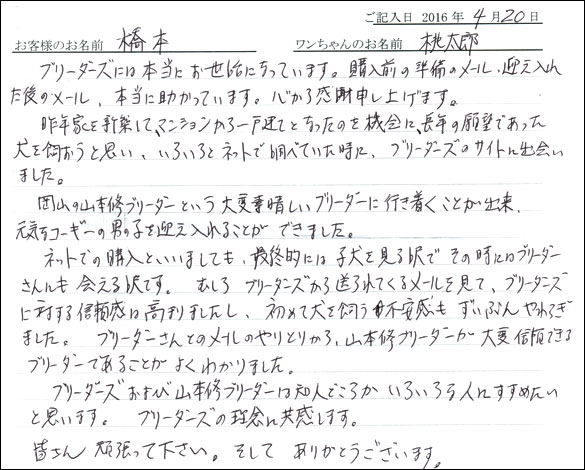 ご記入日 2016 年 4 月 20 日
お客様のお名前 橋本 ワンちゃんのお名前 桃太郎
ブリーダーズには本当にお世話になっています。購入前の準備のメール、迎え入れ
た後のメール、本当に助かっています。心から感謝申し上げます。
昨年家を新築して、マンションから一戸建てとなったのを機会に、長年の願望であった
犬を飼おうと思い、いろいろとネットで調べていた時に、ブリーダーズのサイトに出会い
ました。
岡山の山本修ブリーダーという大変素晴しいブリーダーに行き着くことが出来、
元気なコーギーの男の子を迎え入れることができました。
ネットでの購入といいましても、最終的には子犬を見る訳でその時にはブリーダー
さんにも会える訳です。むしろブリーダーズから送られてくるメールを見て、ブリーダーズ
に対する信頼感は高まりましたし、初めて犬を飼う不安感もずいぶんやわらぎ
ました。ブリーダーさんとのメールのやりとりから、山本修ブリーダーが大変信頼できる
ブリーダーであることがよくわかりました。
ブリーダーズおよび山本修ブリーダーは知人どころかいろいろな人にすすめたい
と思います。ブリーダーズの理念に共感します。
皆さん頑張って下さい。そしてありがとうございます。